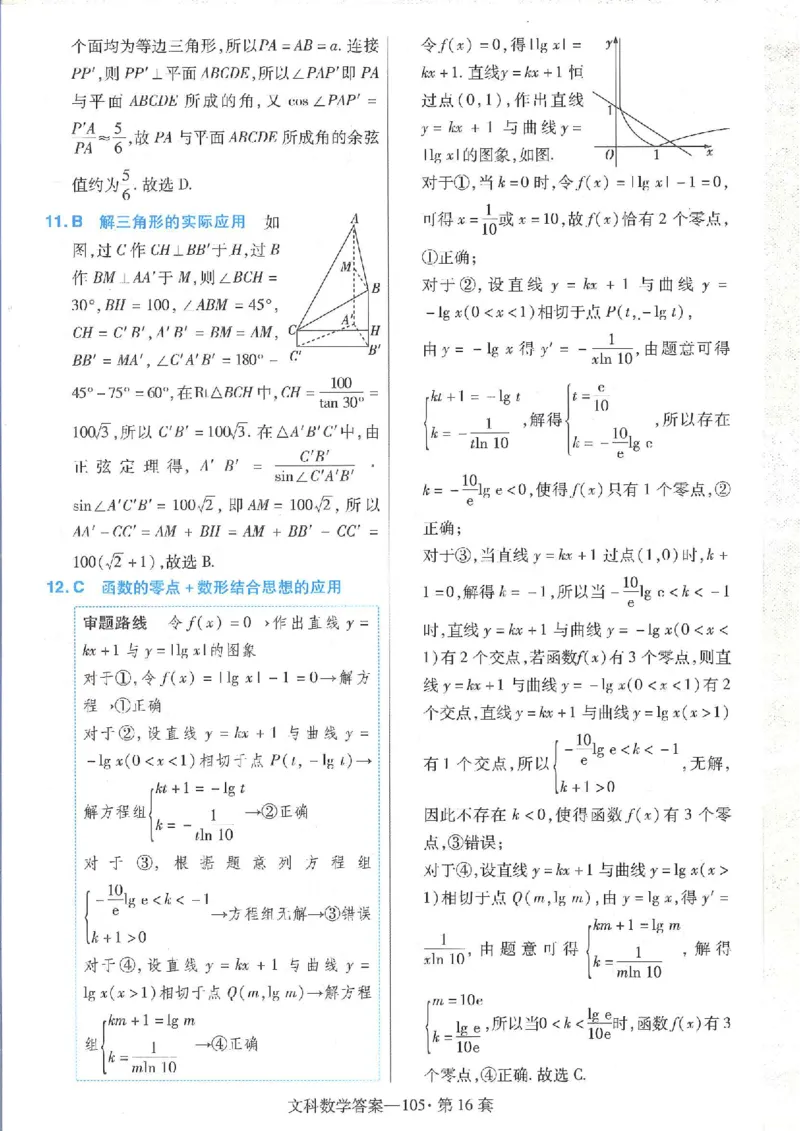 个面均为等边三角形,所以PA=AB=a. 连接
PP′,则 PP′⊥平面 ABCDE,所以∠PAP′即 PA
与平面 ABCDE 所成的角,又 cos ∠PAP′ =
P′A/PA ≈ 5/6,故 PA 与平面 ABCDE 所成角的余弦
值约为 5/6. 故选 D.
11. B 解三角形的实际应用 如
图,过 C 作 CH⊥BB′于 H,过 B
作 BM⊥AA′于 M,则∠BCH =
30°,BH = 100,∠ABM = 45°,
CH = C′B′,A′B′ = BM = AM,
BB′ = MA′,∠C′A′B′ = 180° -
45° - 75° = 60°,在Rt△BCH 中,CH = 100/tan 30° =
100√3,所以 C′B′ = 100√3. 在△A′B′C′中,由
正弦定理得,A′B′ = C′B′/sin∠C′A′B′ ·
sin∠A′C′B′ = 100√2,即 AM = 100√2,所以
AA′ - CC′ = AM + BH = AM + BB′ - CC′ =
100(√2 + 1),故选 B.
A
M
B
C
A′
H
C′
B′
12. C 函数的零点 + 数形结合思想的应用
审题路线 令 f(x) = 0→作出直线 y =
kx + 1 与 y = |lg x|的图象
对于①,令 f(x) = |lg x| - 1 = 0→解方
程→①正确
对于②,设直线 y = kx + 1 与曲线 y =
-lg x(0 < x < 1)相切于点 P(t, -lg t)→
解方程组{kt + 1 = -lg t
k = -1/(tln 10) →②正确
对于③,根据题意列方程组
{-(10/e)lg e < k < -1
k + 1 > 0 →方程组无解→③错误
对于④,设直线 y = kx + 1 与曲线 y =
lg x(x > 1)相切于点 Q(m,lg m)→解方程
组{km + 1 = lg m
k = 1/(mln 10) →④正确
令 f(x) = 0,得|lg x| =
kx + 1. 直线y = kx + 1 恒
过点(0,1),作出直线
y = kx + 1 与曲线 y =
|lg x|的图象,如图.
y
1
O
1
x
对于①,当 k = 0 时,令 f(x) = |lg x| - 1 = 0,
可得 x = 1/10 或 x = 10,故 f(x)恰有 2 个零点,
①正确;
对于②,设直线 y = kx + 1 与曲线 y =
-lg x(0 < x < 1)相切于点 P(t, -lg t),
由 y = -lg x 得 y′ = -1/(xln 10),由题意可得
{kt + 1 = -lg t
k = -1/(tln 10) ,解得{t = e/10
k = -(10/e)lg e ,所以存在
k = -(10/e)lg e < 0,使得 f(x)只有 1 个零点,②
正确;
对于③,当直线 y = kx + 1 过点(1,0)时,k +
1 = 0,解得 k = -1,所以当 -(10/e)lg e < k < -1
时,直线 y = kx + 1 与曲线 y = -lg x(0 < x <
1)有 2 个交点,若函数f(x)有 3 个零点,则直
线 y = kx + 1 与曲线 y = -lg x(0 < x < 1)有 2
个交点,直线 y = kx + 1 与曲线 y = lg x(x > 1)
有 1 个交点,所以{-(10/e)lg e < k < -1
k + 1 > 0 ,无解,
因此不存在 k < 0,使得函数 f(x)有 3 个零
点,③错误;
对于④,设直线 y = kx + 1 与曲线 y = lg x(x >
1)相切于点 Q(m,lg m),由 y = lg x,得 y′ =
1/(xln 10),由题意可得{km + 1 = lg m
k = 1/(mln 10) ,解得
{m = 10e
k = lg e/10e ,所以当0 < k < lg e/10e 时,函数 f(x)有 3
个零点,④正确. 故选 C.
文科数学答案—105·第 16 套